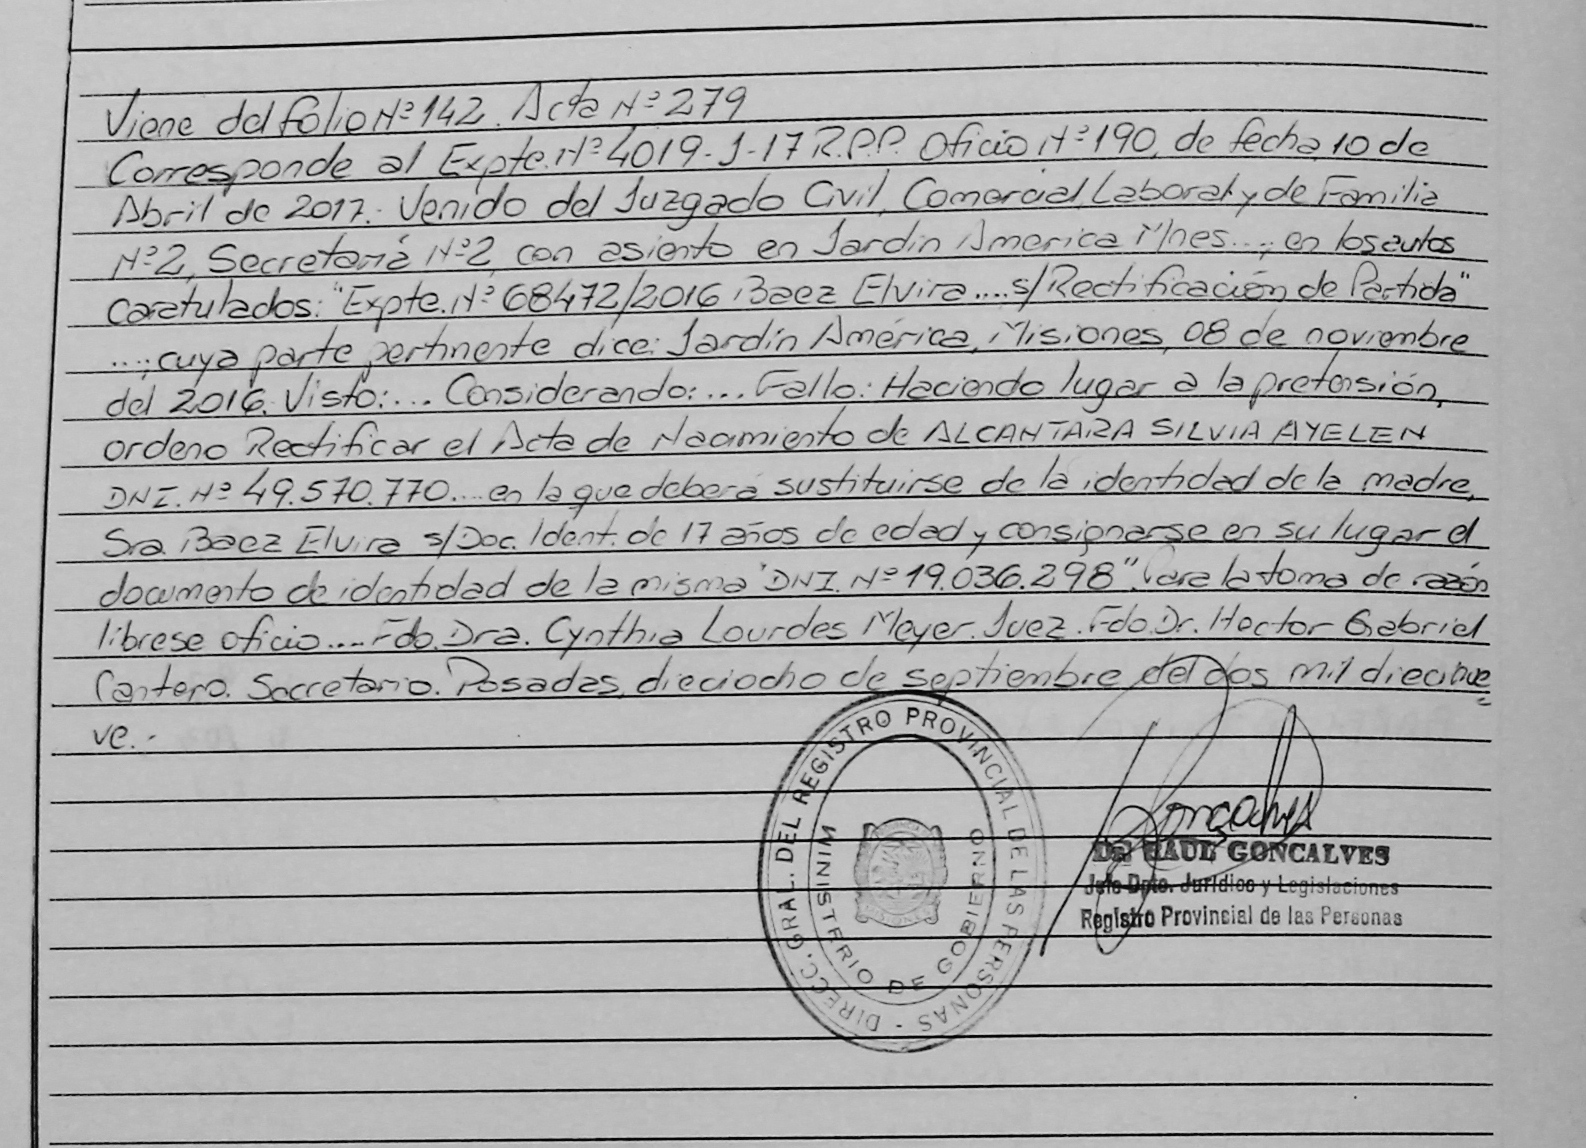 Viene del folio Nº 142. Acta Nº 279
Corresponde al Expte. Nº 4019-J-17 R.P.P. Oficio Nº 190, de fecha 10 de
Abril de 2017.- Venido del Juzgado Civil, Comercial, Laboral y de Familia
Nº 2, Secretaría Nº 2, con asiento en Jardín America Mnes...; en los autos
caratulados: "Expte. Nº 68472/2016 Baez Elvira.... s/Rectificación de Partida"
...; cuya parte pertinente dice: Jardín América, Misiones, 08 de noviembre
del 2016. Visto:... Considerando:... Fallo: Haciendo lugar a la pretensión,
ordeno Rectificar el Acta de Nacimiento de ALCANTARA SILVIA AYELEN
DNI. Nº 49.570.770.... en la que deberá sustituirse de la identidad de la madre,
Sra. Baez Elvira s/Doc. Ident. de 17 años de edad y consignarse en su lugar el
documento de identidad de la misma "DNI. Nº 19.036.298". Para la toma de razón
librese oficio.... Fdo. Dra. Cynthia Lourdes Meyer. Juez. Fdo. Dr. Hector Gabriel
Cantero. Secretario. Posadas, dieciocho de septiembre del dos mil diecinue
ve.-
DIRECC. GRAL. DEL REGISTRO PROVINCIAL DE LAS PERSONAS -
MINISTERIO DE GOBIERNO
Goncalves
Dr. RAUL GONCALVES
Jefe Dpto. Jurídico y Legislaciones
Registro Provincial de las Personas